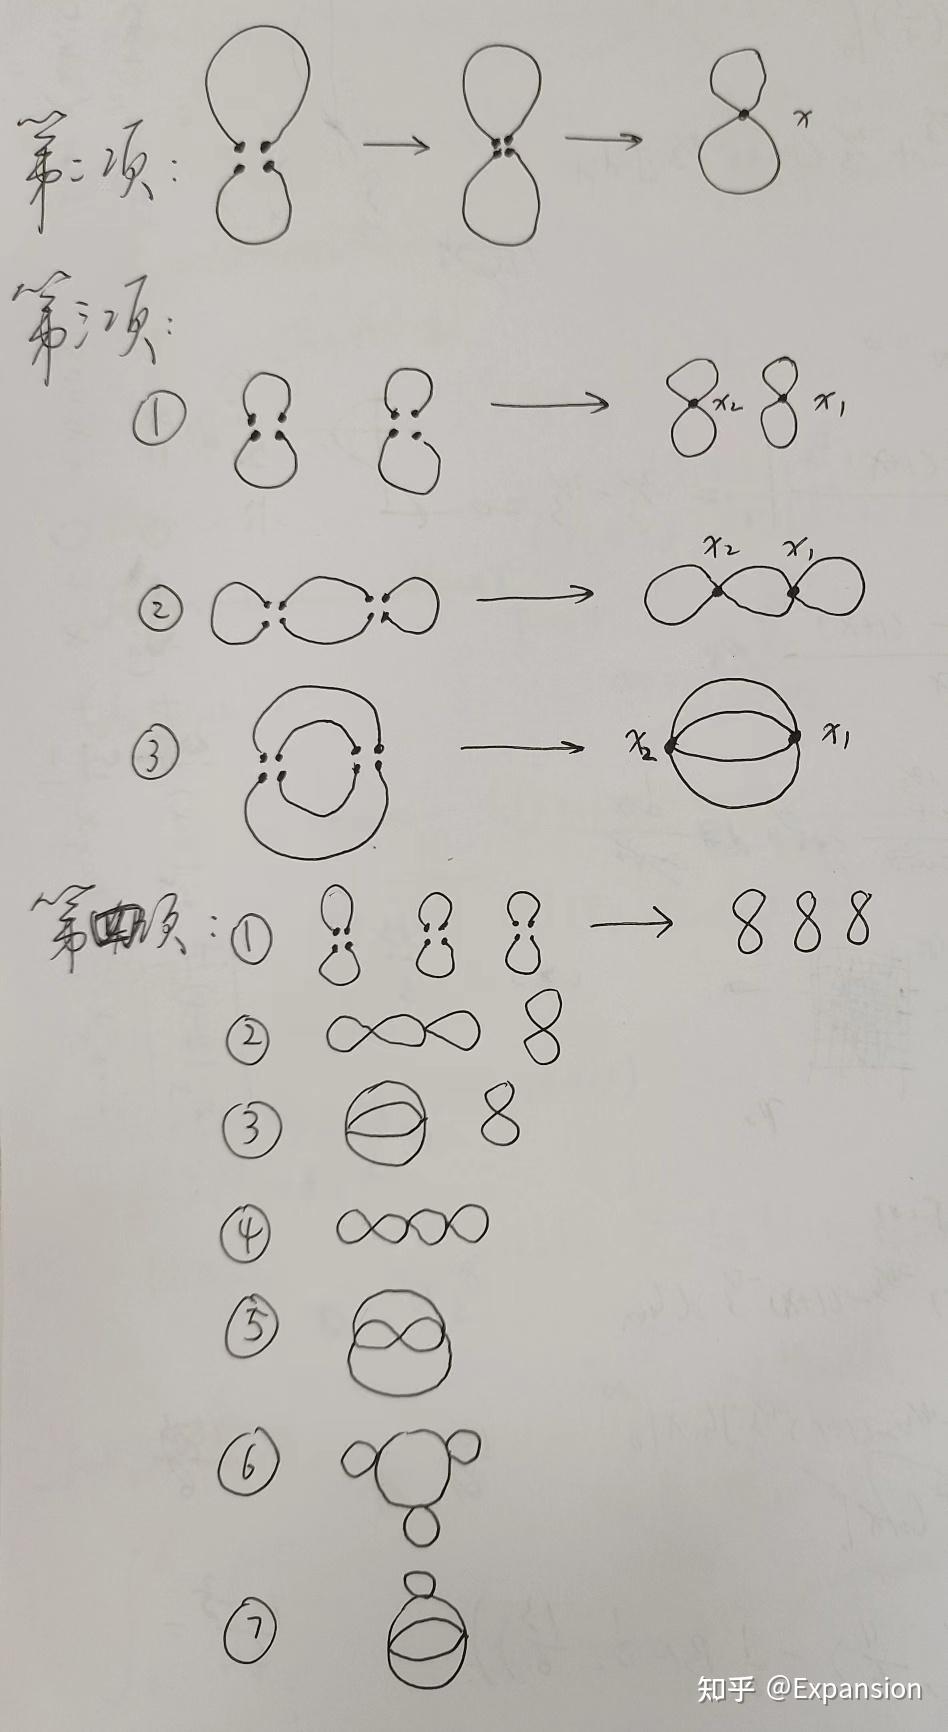 第二项: x
第三项:
① x₂ x₁
② x₂ x₁
③ x₂ x₁
第四项: ①
②
③
④
⑤
⑥
⑦
知乎 @Expansion